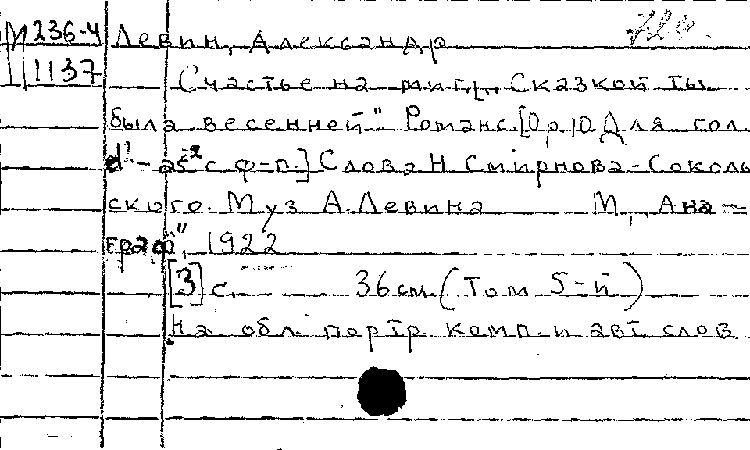 М 236-4 Левин, Александр
1137 Счастье на миг. „Сказкой ты
была весенней" Романс. [Op.10 Для гол.
d¹-as² с ф-п.] Слова Н Смирнова-Соколь
ского. Муз А. Левина М, „Ана-
граф", 1922
[3] с. 36 см. (Том 5-й)
На обл. портр. комп. и авт слов